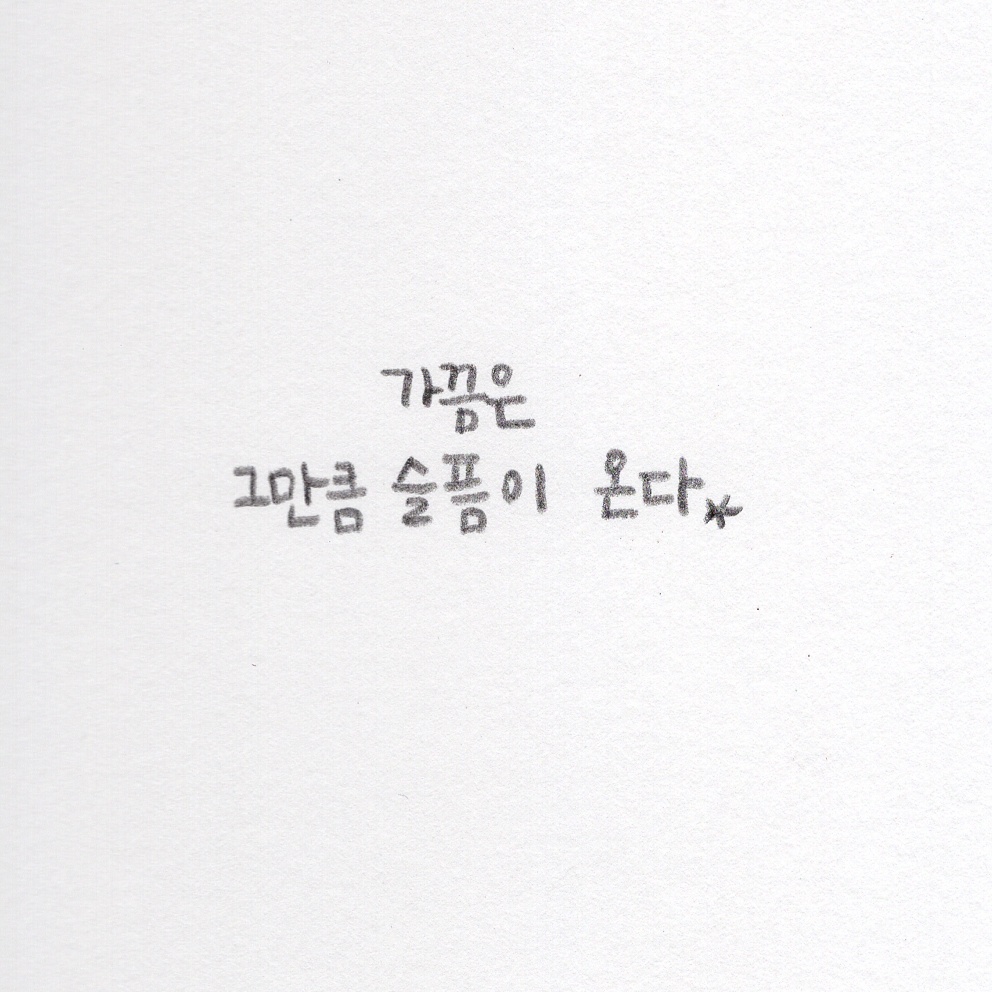 가끔은
그만큼 슬픔이 온다*